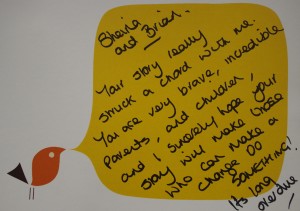 Sheina
and Brian.
Your story really
struck a chord with me.
You are very brave, incredible
parents, and children,
and I sincerely hope your
story will make those
who can make a
change DO
SOMETHING!
Its long
overdue